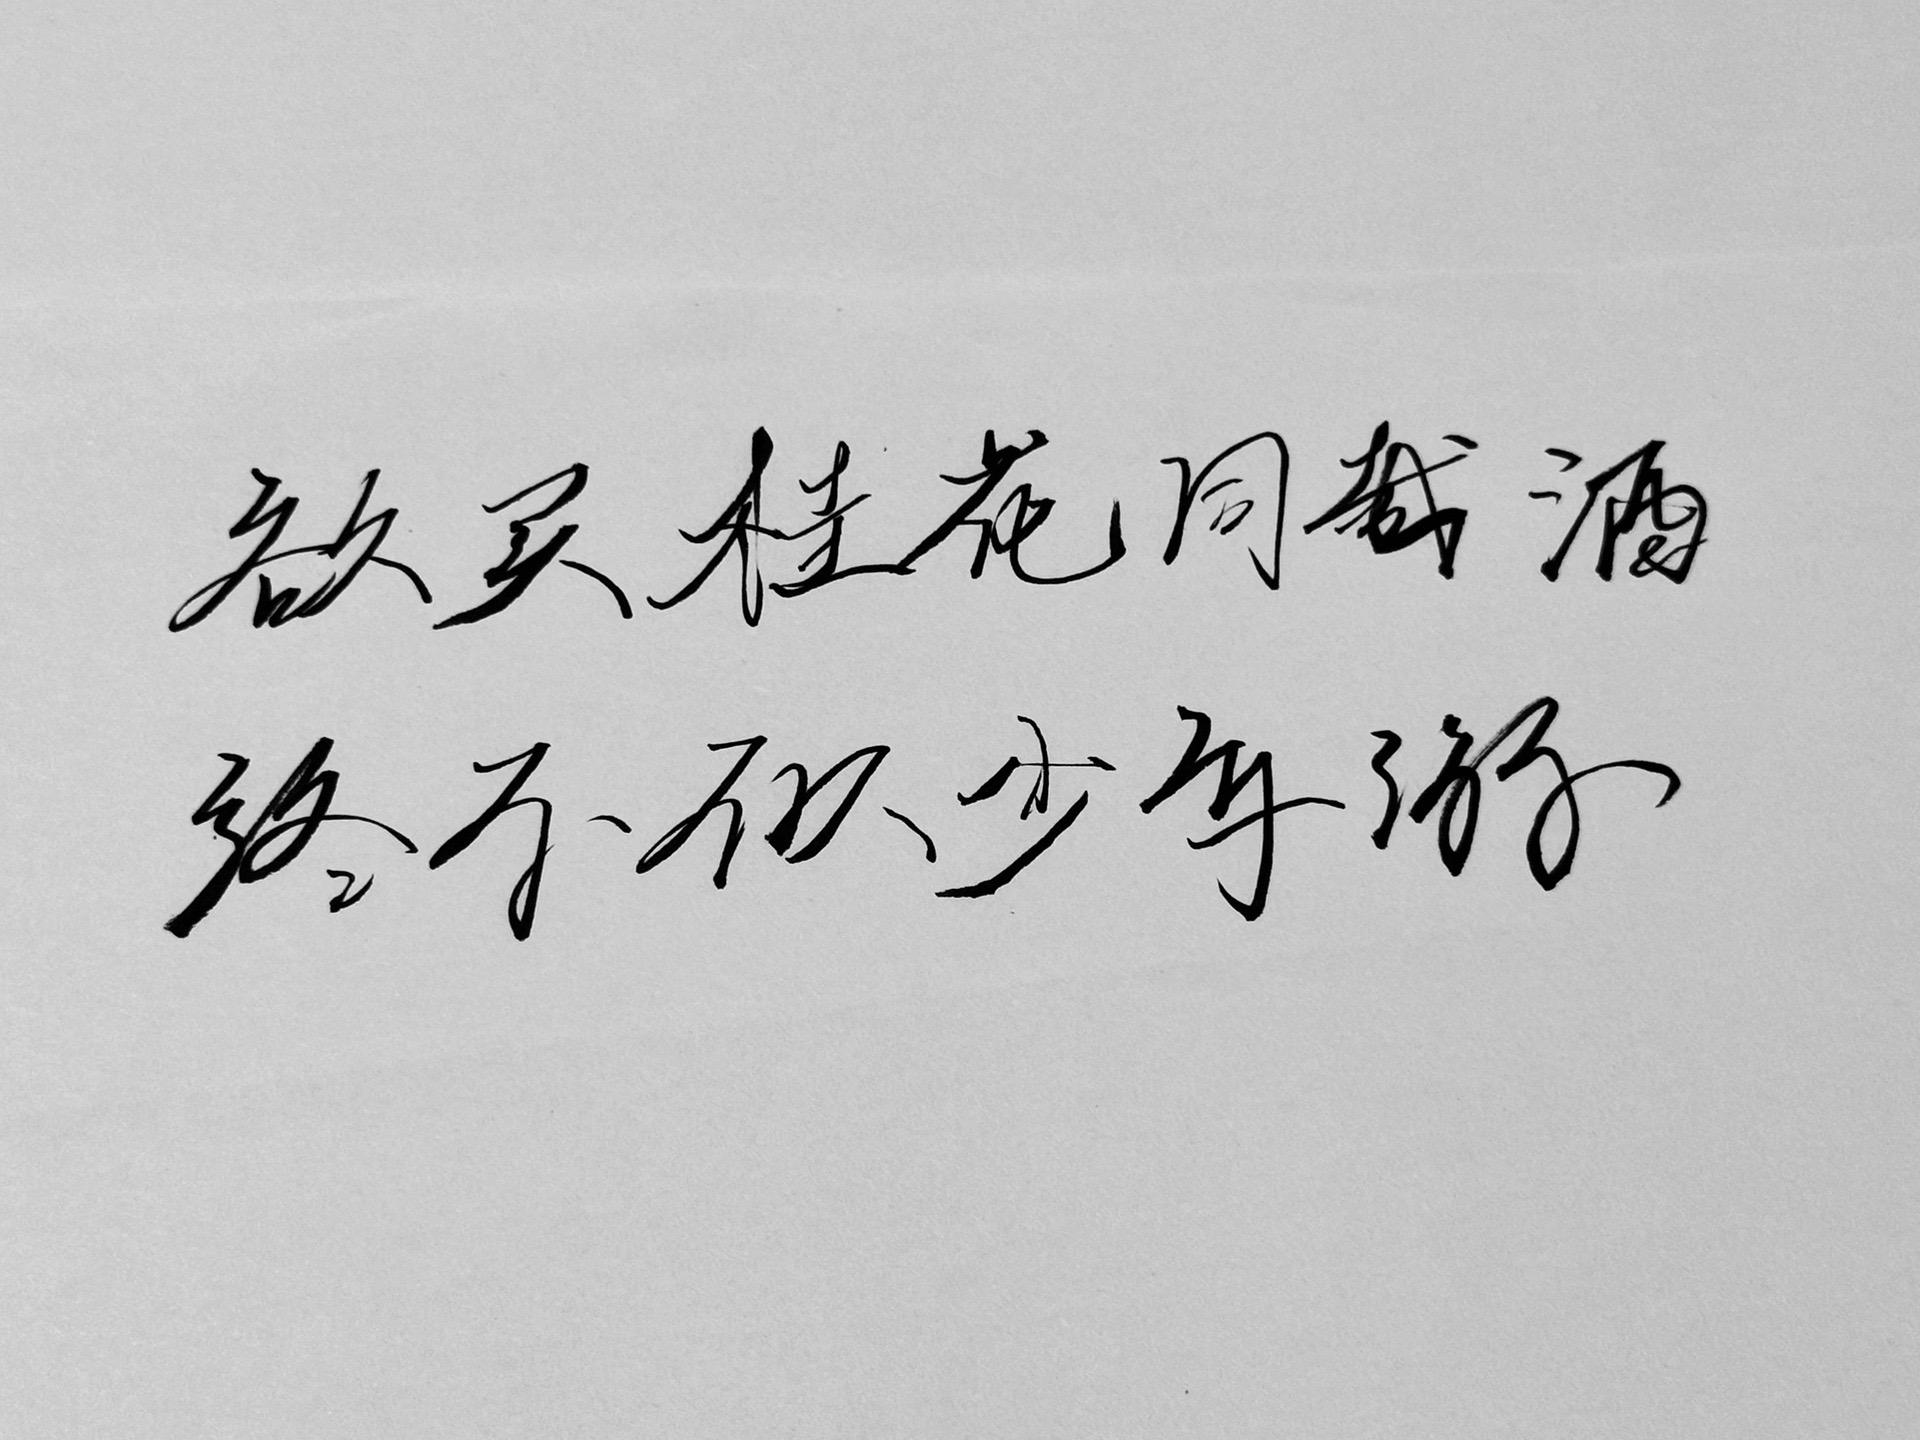 欲买桂花同载酒
终不似少年游